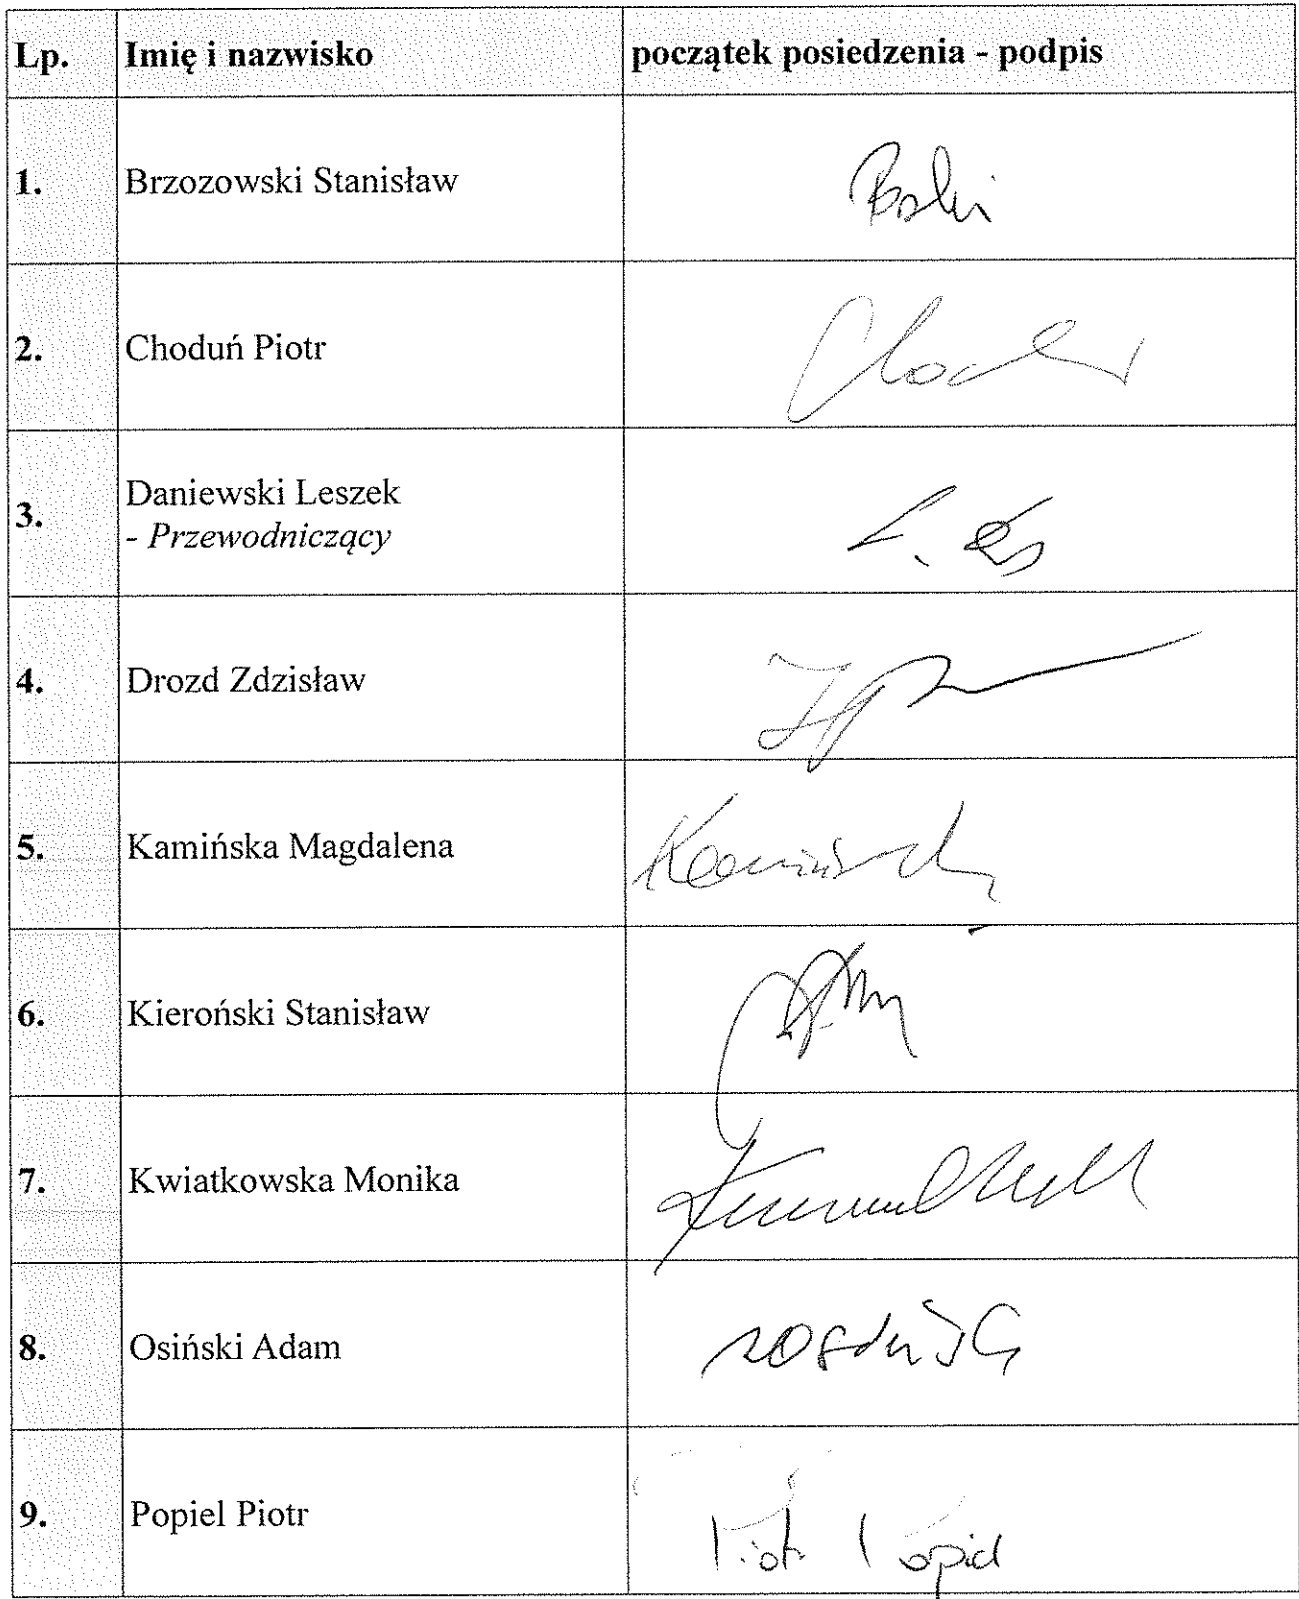 Lp. Imię i nazwisko początek posiedzenia - podpis
1. Brzozowski Stanisław
2. Choduń Piotr
3. Daniewski Leszek
- Przewodniczący
4. Drozd Zdzisław
5. Kamińska Magdalena
6. Kieroński Stanisław
7. Kwiatkowska Monika
8. Osiński Adam
9. Popiel Piotr Piotr Popiel